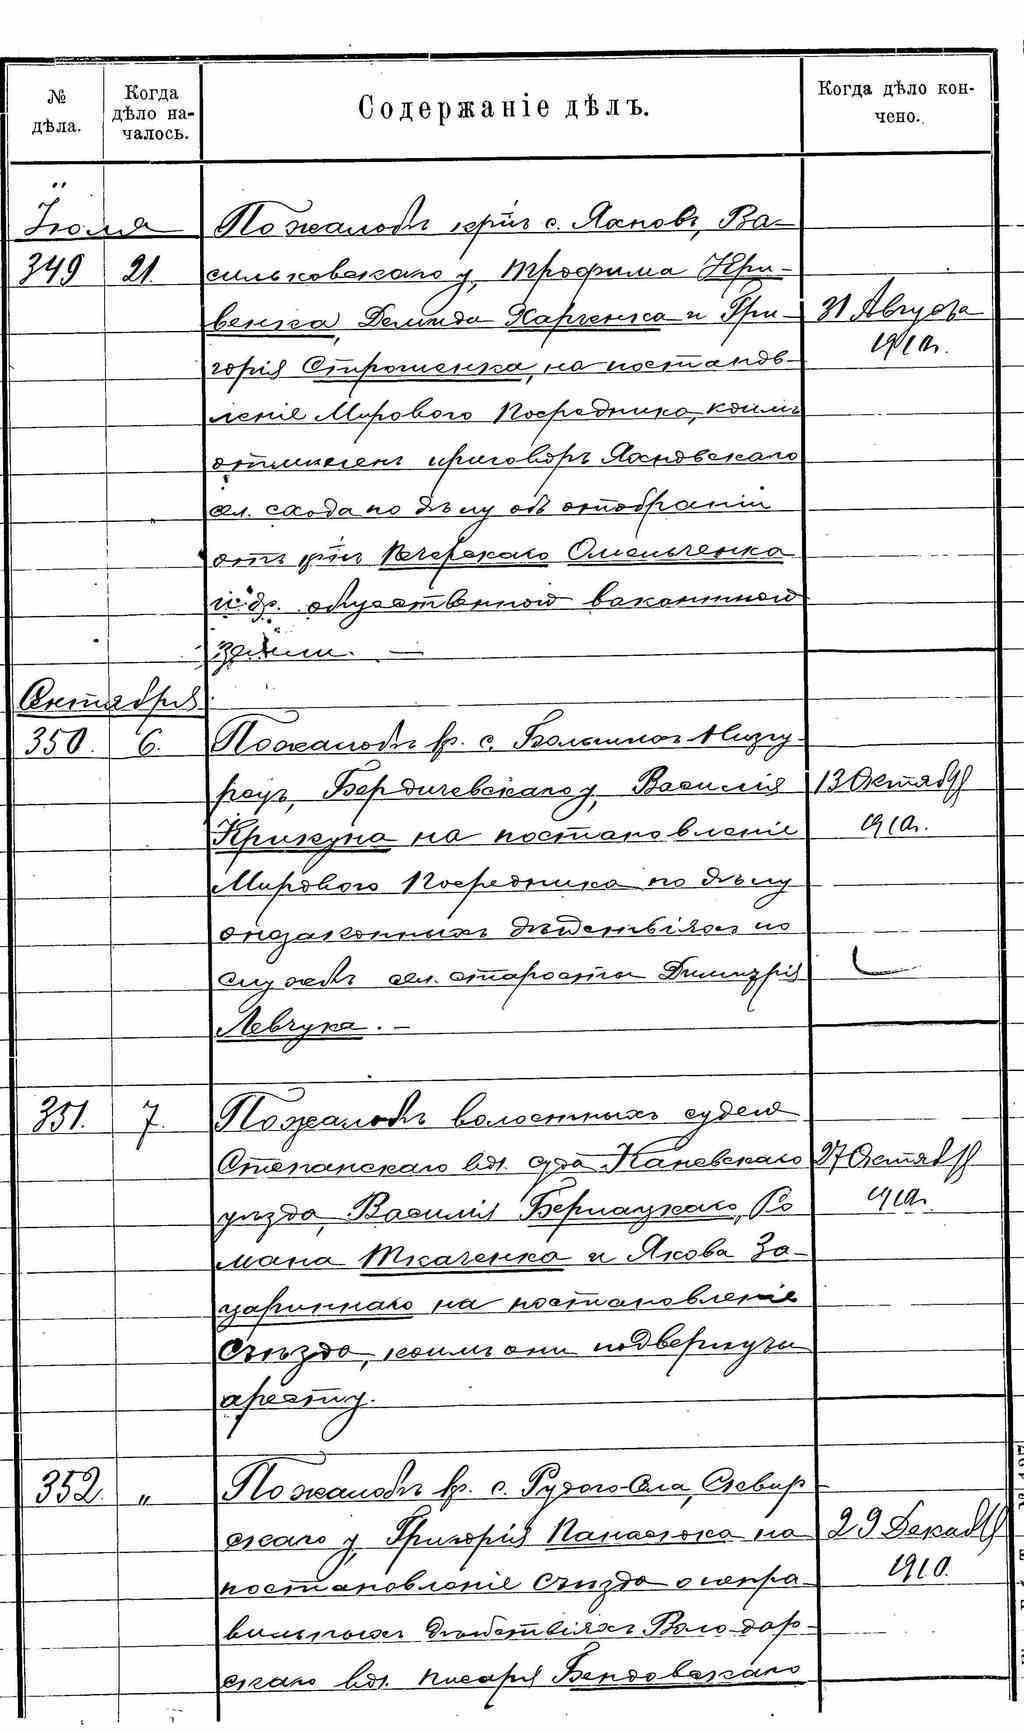 № дѣла.
Когда дѣло на-
чалось.
Содержаніе дѣлъ.
Когда дѣло кон-
чено.
Іюля
По жалобѣ кр. с. Яхновъ, Ва-
349 21. сильковскаго у, Трофима Кри-
венка, Демида Харченка и Гри- 31 Августа
горія Строменка, на постанов- 1910г.
леніе Мирового Посредника, коимъ
отмѣненъ приговоръ Яхновскаго
сел. схода по дѣлу объ отобраніи
отъ кр. Печерскаго Омельченка
и др. общественной вакантной
земли. —
Сентября
350. 6. По жалобѣ кр. с. Большихъ Низгу-
рецъ, Бердичевскаго у, Василія 13 Октября
Крикуна на постановленіе 1910г.
Мирового Посредника по дѣлу
о незаконныхъ дѣйствіяхъ по
службѣ сел. старосты Димитрія
Левчука. —
351. 7. По жалобѣ волостныхъ судей
Степанскаго вол. суда Каневскаго 27 Октября
уѣзда, Василія Бернацкаго, Ро 1910г.
мана Ткаченка и Якова За-
цариннаго на постановленіе
Съѣзда, коимъ они подвергнуты
аресту.
352. " По жалобѣ кр. с. Рудого-Села, Сквир
скаго у, Григорія Панасюка на 29 Декабря
постановленіе Съѣзда о непра- 1910.
вильныхъ дѣйствіяхъ Володар-
скаго вол. писаря Бендовскаго